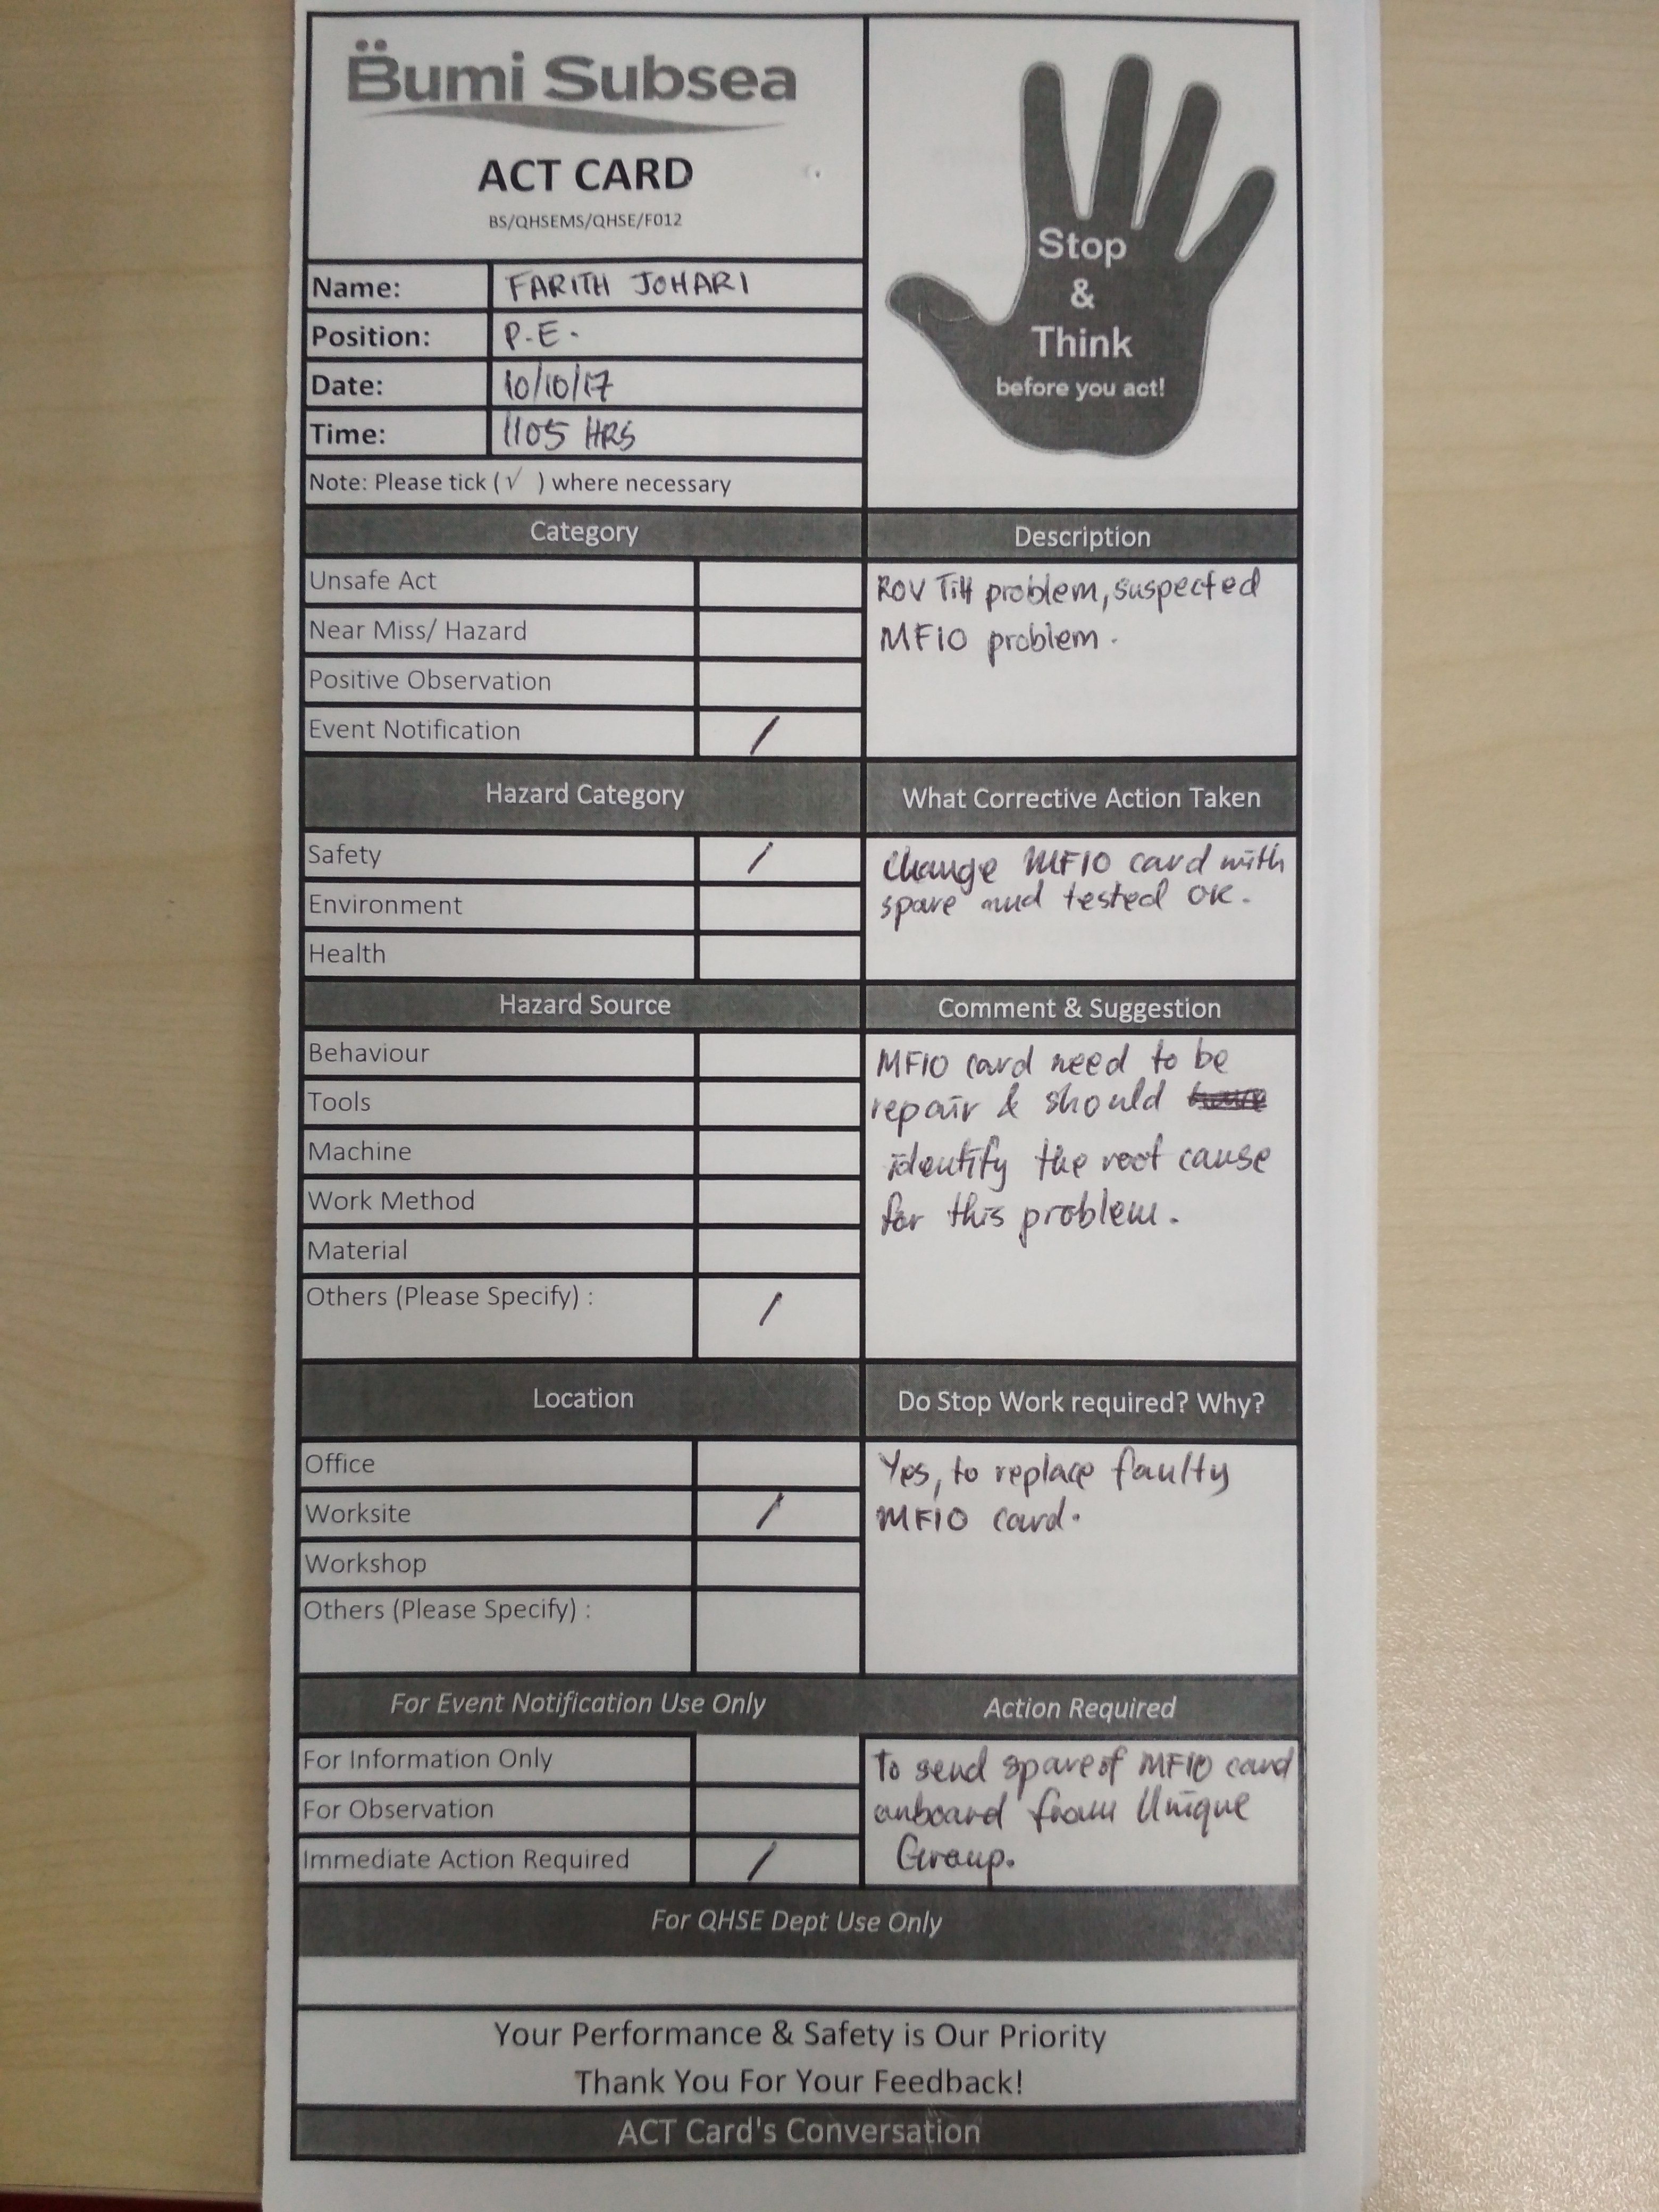 Bumi Subsea
ACT CARD
BS/QHSEMS/QHSE/F012
Stop
&
Think
before you act!
Name: FARITH JOHARI
Position: P.E.
Date: 10/10/17
Time: 1105 HRS
Note: Please tick (√ ) where necessary
Category
Unsafe Act
Near Miss/ Hazard
Positive Observation
Event Notification /
Description
ROV Tilt problem, suspected
MFIO problem.
Hazard Category
Safety /
Environment
Health
What Corrective Action Taken
Change MFIO card with
spare and tested OK.
Hazard Source
Behaviour
Tools
Machine
Work Method
Material
Others (Please Specify) : /
Comment & Suggestion
MFIO card need to be
repair & should
identify the root cause
for this problem.
Location
Office
Worksite /
Workshop
Others (Please Specify) :
Do Stop Work required? Why?
Yes, to replace faulty
MFIO card.
For Event Notification Use Only
For Information Only
For Observation
Immediate Action Required /
Action Required
To send spare of MFIO card
onboard from Unique
Group.
For QHSE Dept Use Only
Your Performance & Safety is Our Priority
Thank You For Your Feedback!
ACT Card's Conversation